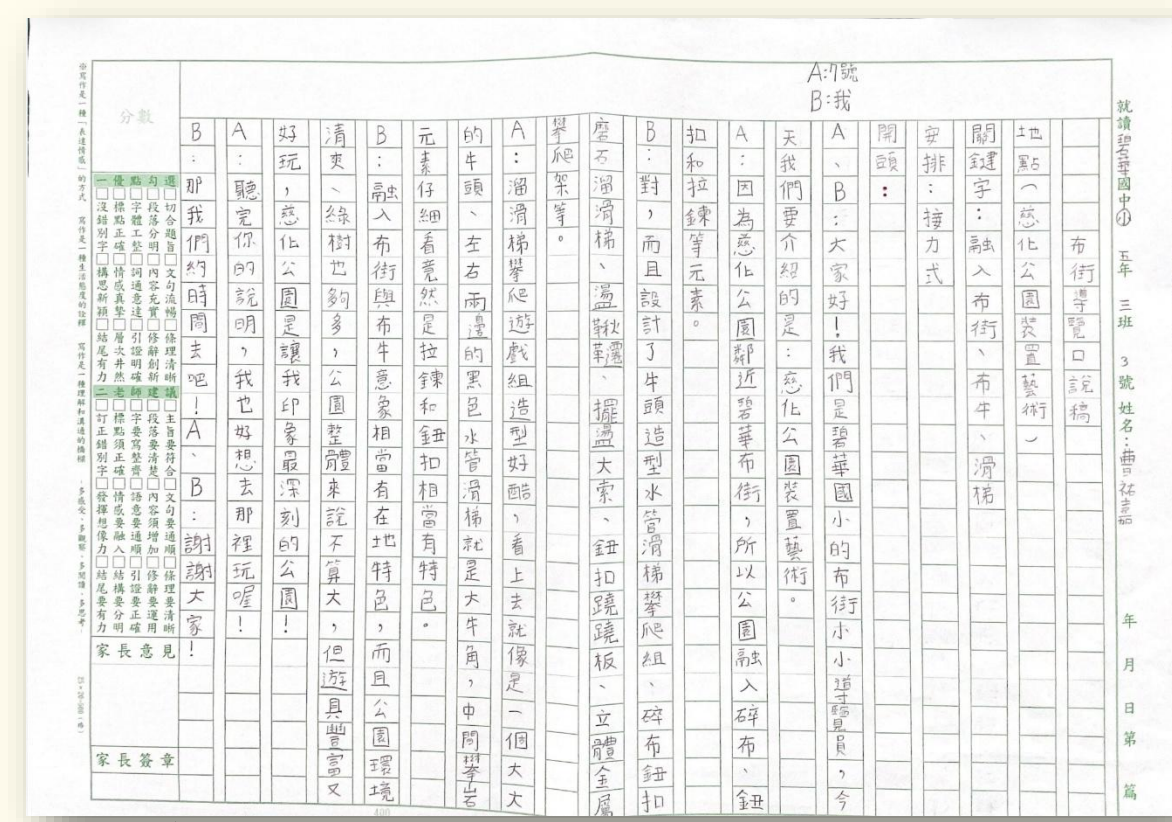 就讀碧華國中小 五年 三班 3號 姓名：曹祐嘉 年 月 日 第 篇
A:7號
B:我
布街導覽口說稿
地點（慈化公園裝置藝術）
關鍵字：融入布街、布牛、滑梯
安排：接力式
開頭：
A、B：大家好！我們是碧華國小的布街小小導覽員，今
天我們要介紹的是：慈化公園裝置藝術。
A：因為慈化公園鄰近碧華布街，所以公園融入碎布、鈕
扣和拉鍊等元素。
B：對，而且設計了牛頭造型水管滑梯攀爬組、碎布鈕扣
磨石溜滑梯、盪鞦韆、擺盪大索、鈕扣蹺蹺板、立體金屬
攀爬架等。
A：溜滑梯攀爬遊戲組造型好酷，看上去就像是一個大大
的牛頭、左右兩邊的黑色水管滑梯就是大牛角，中間攀岩
元素仔細看竟然是拉鍊和鈕扣相當有特色。
B：融入布街與布牛意象相當有在地特色，而且公園環境
清爽、綠樹也夠多，公園整體來說不算大，但遊具豐富又
好玩，慈化公園是讓我印象最深刻的公園！
A：聽完你的說明，我也好想去那裡玩喔！
B：那我們約時間去吧！A、B：謝謝大家！
分數
優點勾選
一
□切合題旨□文句流暢□條理清晰
□段落分明□內容充實□修辭創新
□字體工整□詞通意達□引證明確
□標點正確□情感真摯□層次井然
□沒錯別字□構思新穎□結尾有力
二老師建議
□主旨要符合□文句要通順□條理要清晰
□段落要清楚□內容須增加□修辭要運用
□字要寫整齊□語意要通順□引證要正確
□標點須正確□情感要融入□結構要分明
□訂正錯別字□發揮想像力□結尾要有力
家長意見
家長簽章
※寫作是一種「表達情感」的方式 寫作是一種生活態度的詮釋 寫作是一種理解和溝通的橋樑 -多感受、多觀察、多閱讀、多思考-
400